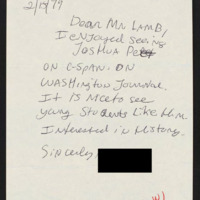 2/5/79
Dear Mr. LAMB,
I ENJOYED seeing
JOSHUA
ON C-SPAN-ON
WASHINGTON JOURNAL
IT IS NICE to see
young Students Like Him
Interested in History.
Sincerely,